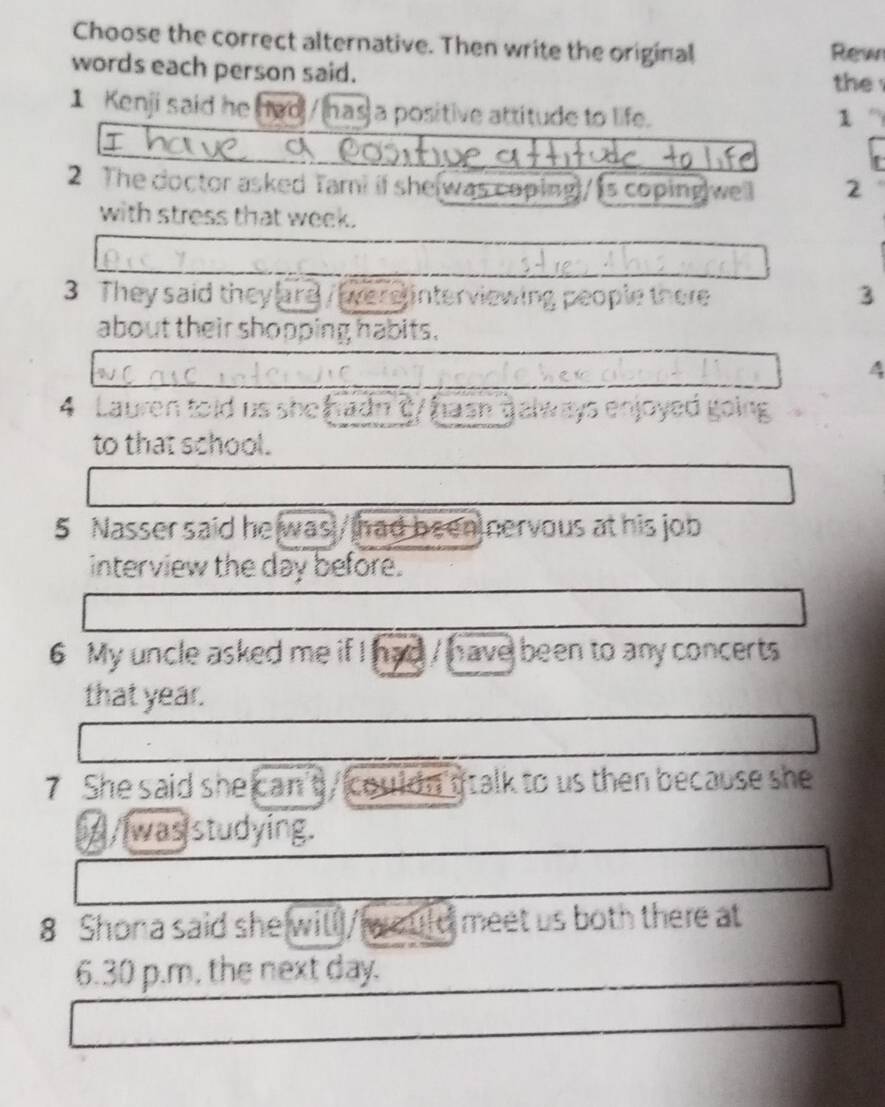 Choose the correct alternative. Then write the original
words each person said.
1 Kenji said he had / has a positive attitude to life.
I have a positive attitude to life
2 The doctor asked Tami if she was coping / is coping well
with stress that week.
Are you stres this week
3 They said they are / were interviewing people there
about their shopping habits.
we are people here about
4 Lauren told us she hadn't / hasn't always enjoyed going
to that school.
5 Nasser said he was / had been nervous at his job
interview the day before.
6 My uncle asked me if I had / have been to any concerts
that year.
7 She said she can't / couldn't talk to us then because she
is / was studying.
8 Shona said she will / would meet us both there at
6.30 p.m. the next day.
Rew
the
1
2
3
4